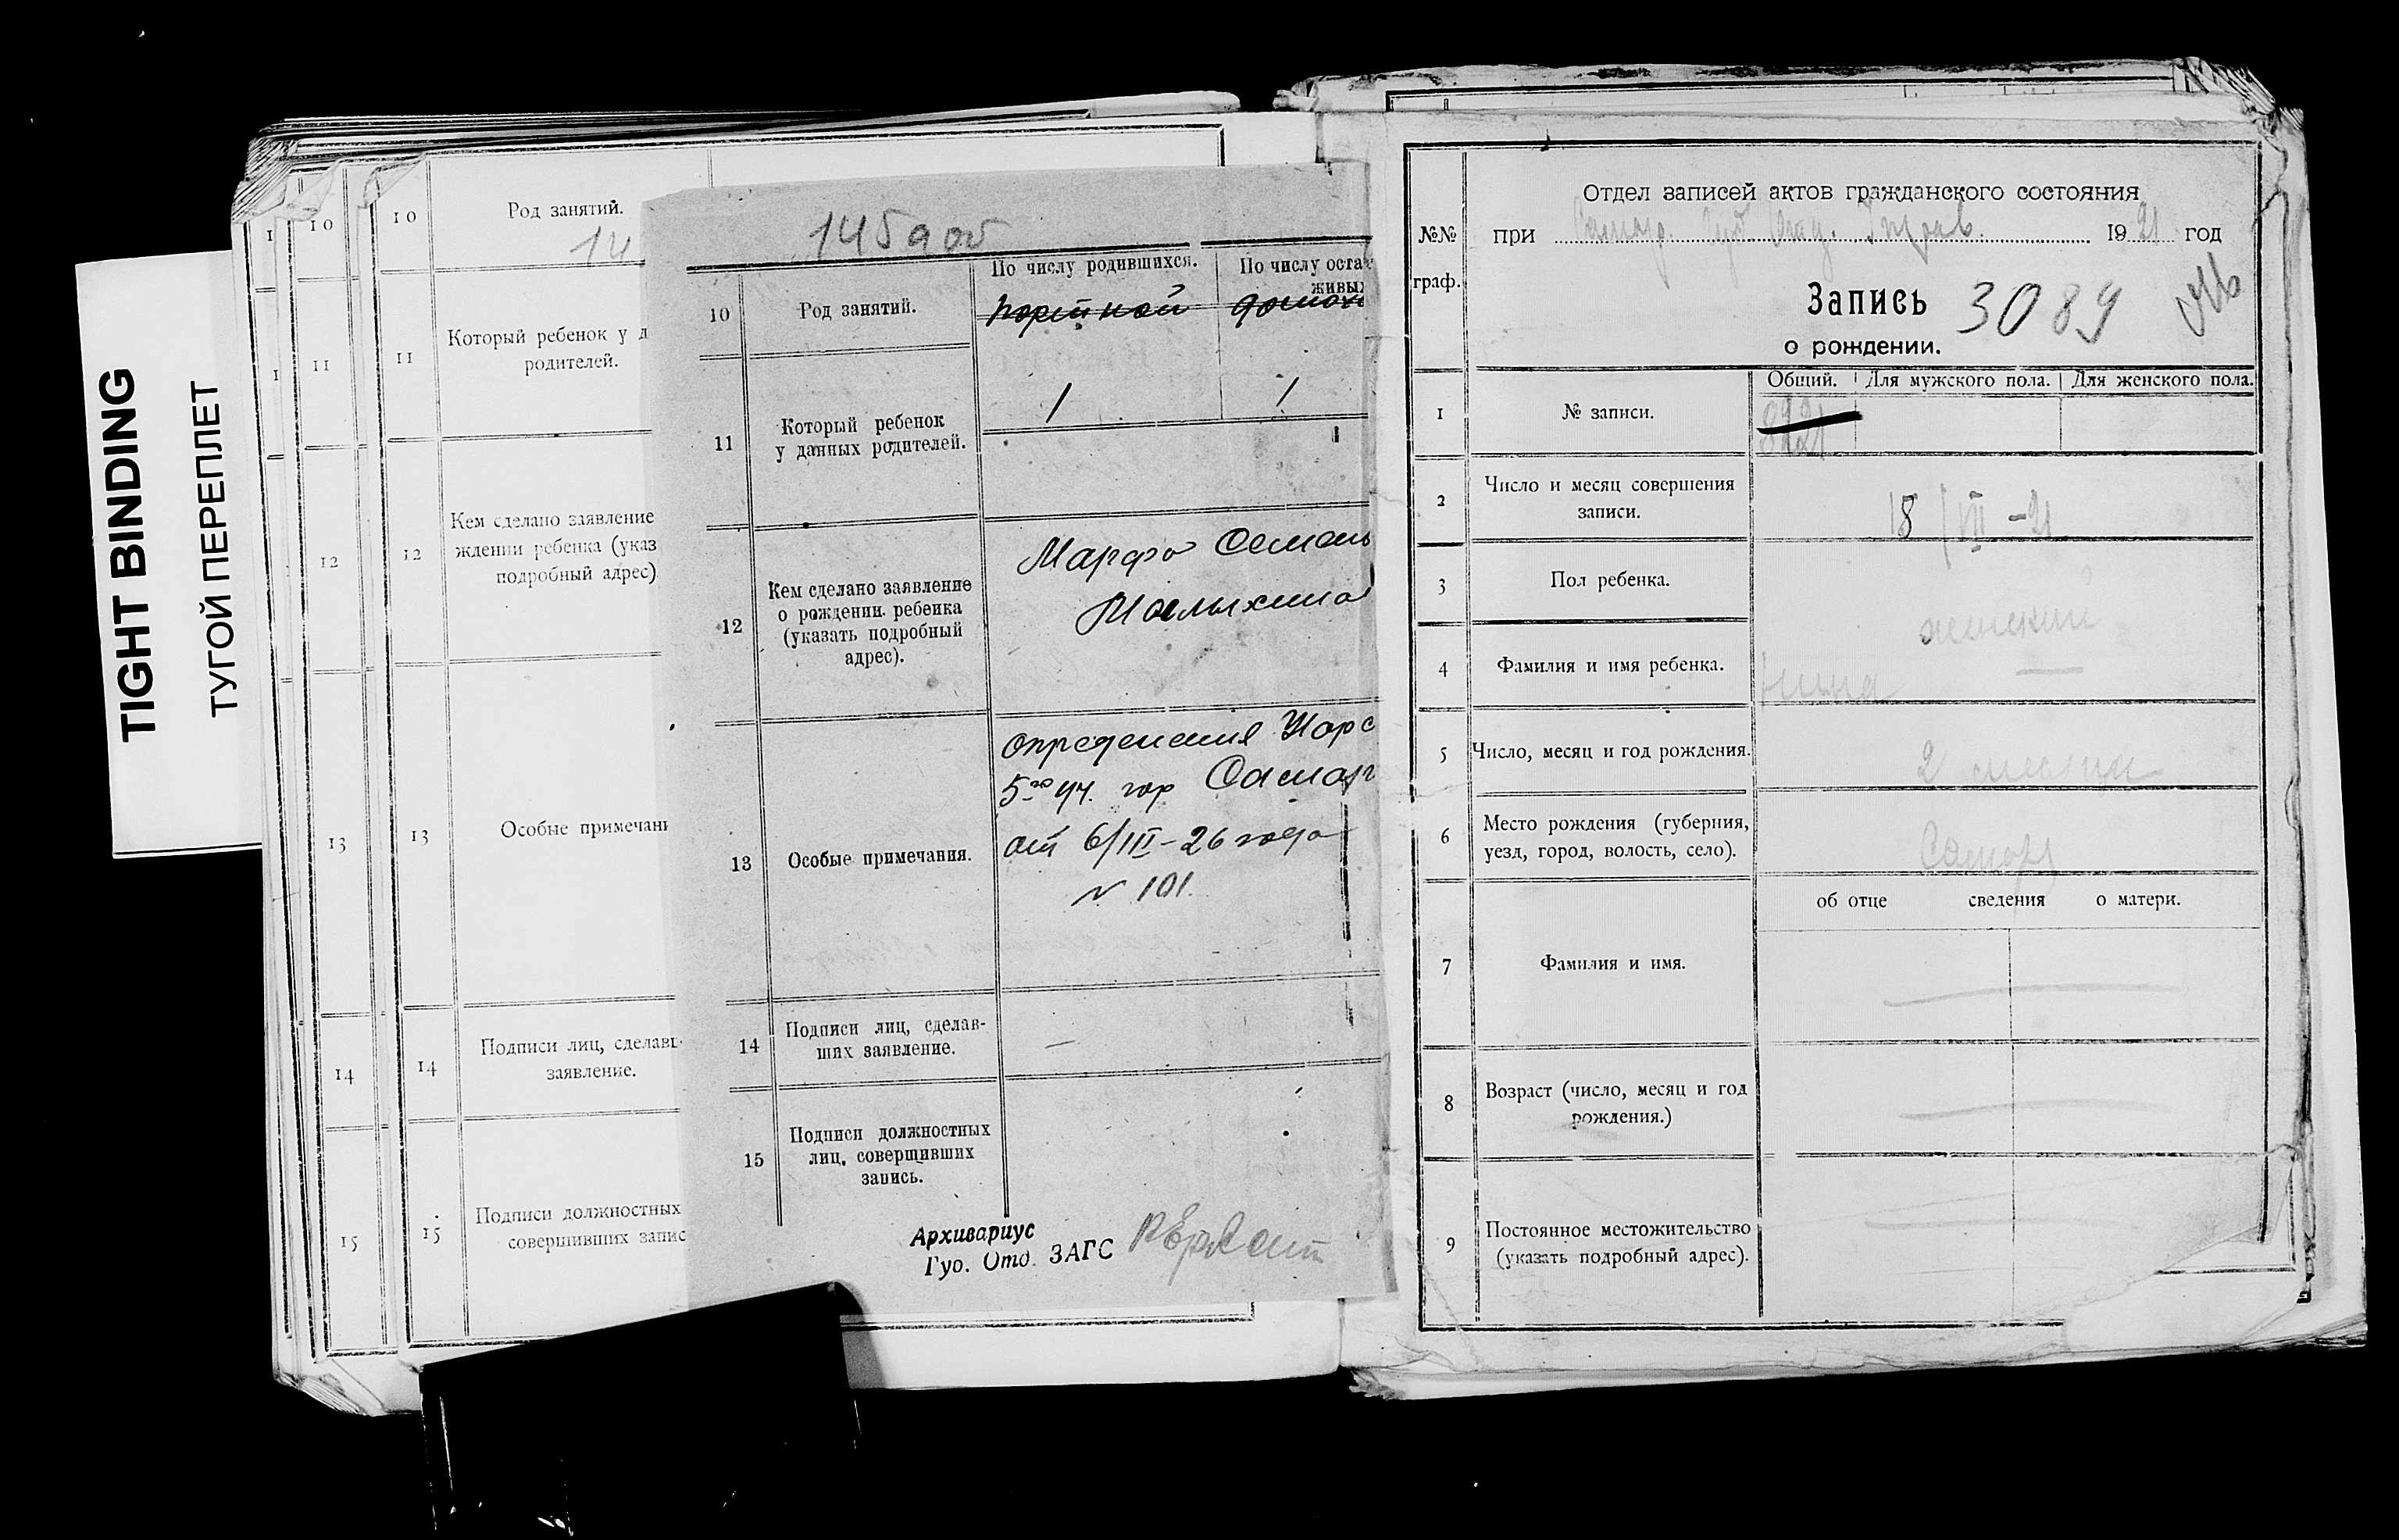 TIGHT BINDING
ТУГОЙ ПЕРЕПЛЕТ
10
11
12
13
14
15
10
Род занятий.
14
11
Который ребенок у д
родителей.
12
Кем сделано заявление
ждении ребенка (указ
подробный адрес)
13
Особые примечани
14
Подписи лиц, сделавш
заявление.
15
Подписи должностных
совершивших запис
145 а об
По числу родившихся.
По числу оста
живых
10
Род занятий.
портной
домохо
11
Который ребенок
у данных родителей.
1
1
12
Кем сделано заявление
о рождении ребенка
(указать подробный
адрес).
Марфа
Малыхина
13
Особые примечания.
определения Нарс
5го уч. гор Самар
от 6/III-26 года
№ 101.
14
Подписи лиц, сделав-
ших заявление.
—
15
Подписи должностных
лиц, совершивших
запись.
Архивариус
Гуо. Отд. ЗАГС
Отдел записей актов гражданского состояния
№№
граф.
при Самар. Губ Отд. Управ. 1921 год
Запись 3089
о рождении.
Общий.
Для мужского пола.
Для женского пола.
1
№ записи.
2
Число и месяц совершения
записи.
18/VII-21
3
Пол ребенка.
женский
4
Фамилия и имя ребенка.
Нина —
5
Число, месяц и год рождения.
2 месяца
6
Место рождения (губерния,
уезд, город, волость, село).
Самара
об отце сведения о матери.
7
Фамилия и имя.
8
Возраст (число, месяц и год
рождения.)
9
Постоянное местожительство
(указать подробный адрес).